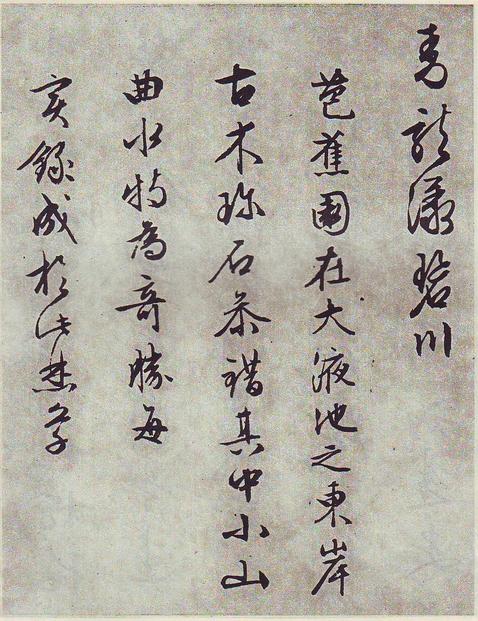 青龍漾碧川
芭蕉園在大液池之東岸
古木珎石叅錯其中小山
曲水特為奇勝每
實錄成於此焚草